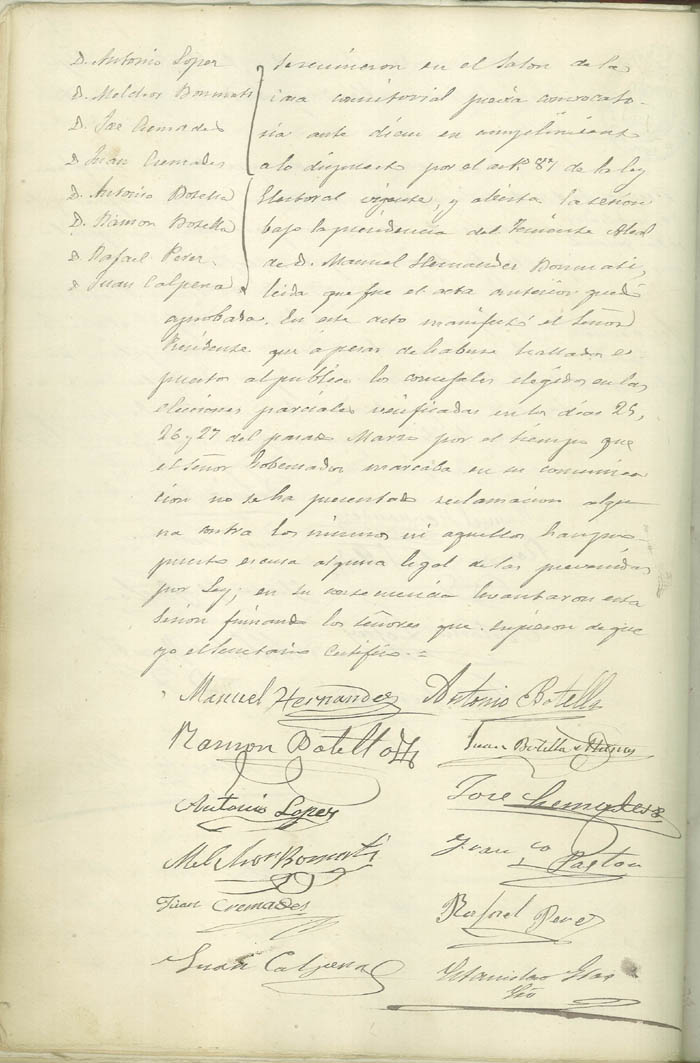 D. Antonio Loper
D. Melchor Bonmati
D. Jose Cremades
D. Juan Cremades
D. Antonio Botella
D. Ramon Botella
D. Rafael Perez
D. Juan Calpena
se reunieron en el Salon de la
casa consistorial previa convocato-
ria ante diem en cumplimiento
a lo dispuesto por el artº 87 de la ley
Electoral vigente, y abierta la sesion
bajo la presidencia del Teniente Alcal
de D. Manuel Hernandez Bonmati,
leida que fue el acta anterior quedó
aprobada. En este acto manifestó el Señor
Presidente que apesar de haberse hallado es-
puestos al público los concejales elegidos en las
elecciones parciales verificadas en los dias 25,
26 y 27 del pasado Marzo por el tiempo que
el Señor Gobernador marcaba en su comunica
cion no se ha presentado reclamacion algu-
na contra los mismos ni aquellos han pro-
puesto escusa alguna legal de las prevenidas
por Ley; en su consecuencia levantaron esta
Sesion firmando los Señores que supieron de que
yo el Secretario Certifico.=
Manuel Hernandez Antonio Botella
Ramon Botella Juan Botella
Antonio Loper Jose Cremades
Melchor Bonmati Franco Pastor
Juan Cremades Rafael Perez
Juan Calpena Estanislao
Srio